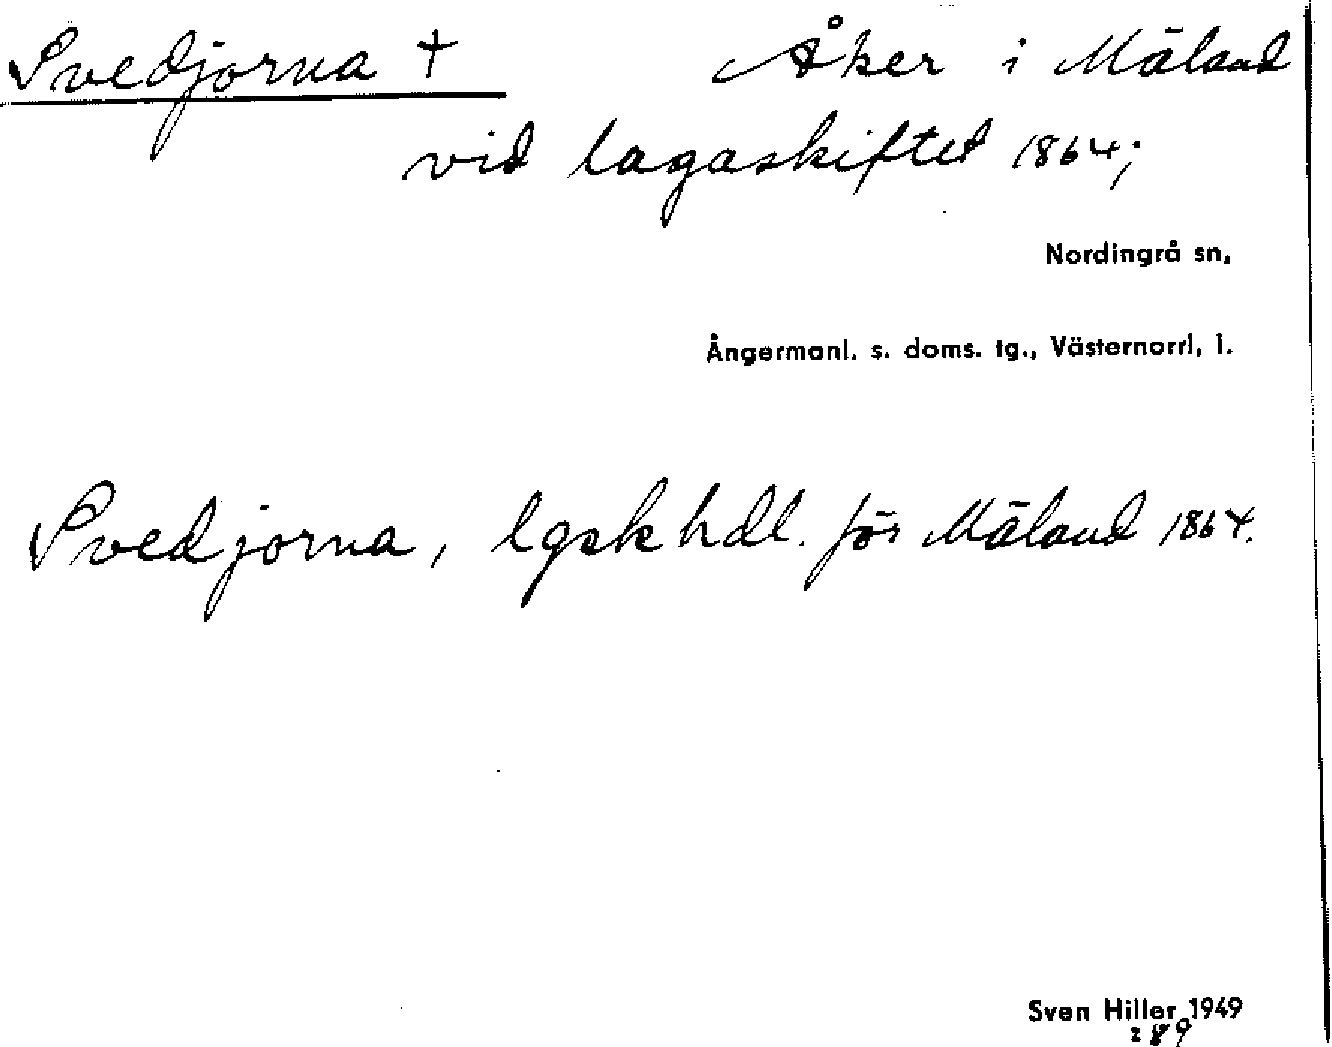 Svedjorna † Åker i Mäland
vid lagaskiftet 1864;
Nordingrå sn,
Ångermanl. s. doms. tg., Västernorrl. l.
Svedjorna, lgsk hdl. för Mäland 1864.
Sven Hiller 1949
289